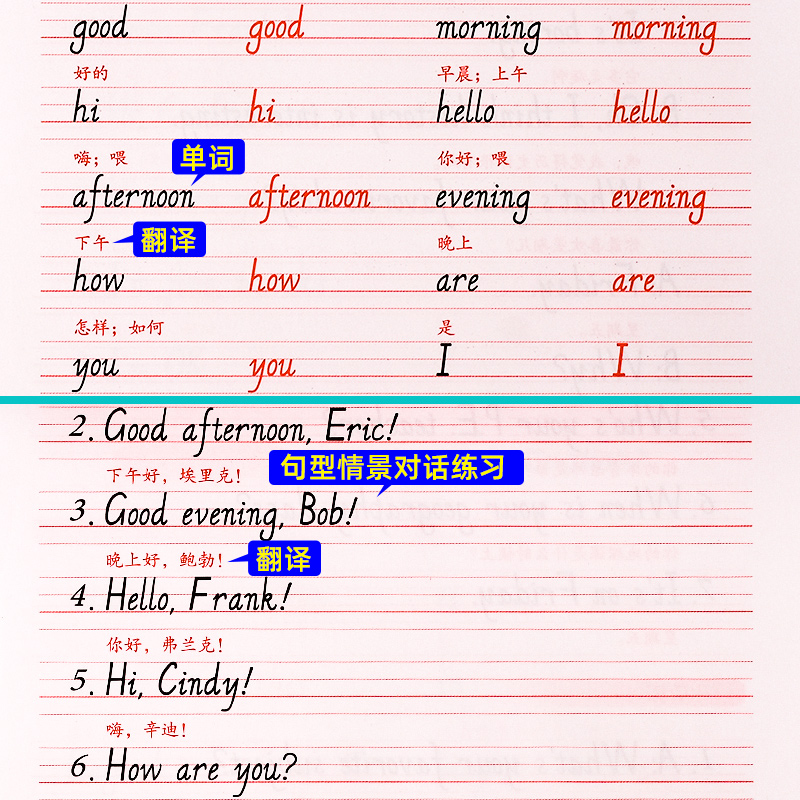 good good morning morning
好的 早晨；上午
hi hi hello hello
嗨；喂 你好；喂
单词
afternoon afternoon evening evening
下午 晚上
翻译
how how are are
怎样；如何 是
you you I I
2. Good afternoon, Eric!
下午好，埃里克！
句型情景对话练习
3. Good evening, Bob!
晚上好，鲍勃！
翻译
4. Hello, Frank!
你好，弗兰克！
5. Hi, Cindy!
嗨，辛迪！
6. How are you?